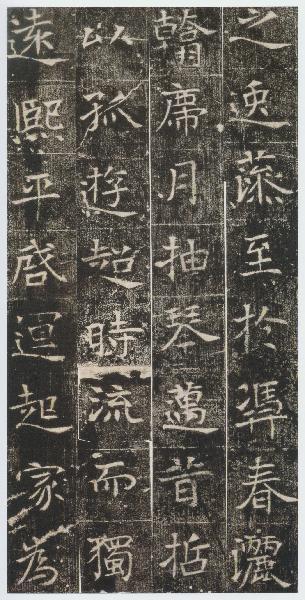 之逸藻至於馮春灑
翰席月抽琴邁昔哲
以孤遊超時流而獨
遠熙平啓運起家為